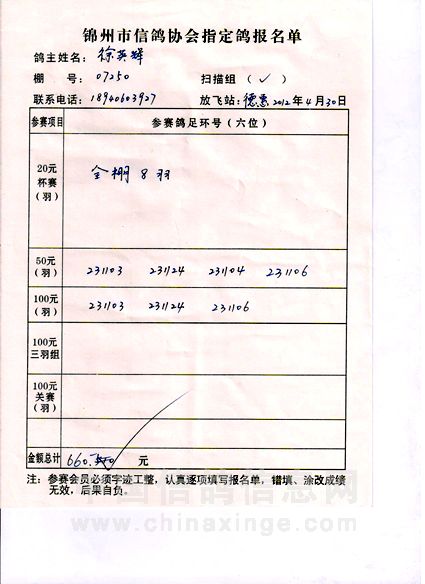 锦州市信鸽协会指定鸽报名单
鸽主姓名： 徐英辉
棚 号： 07250 扫描组（ ✓ ）
联系电话： 18940603927 放飞站： 德惠 2012 年 4 月 30 日
参赛项目 参赛鸽足环号（六位）
20元
杯赛
（羽）
全棚 8 羽
50元
（羽）
231103 231124 231104 231106
100元
（羽）
231103 231124 231106
100元
三羽组
100元
关赛
（羽）
金额总计 660. 元
注：参赛会员必须字迹工整，认真逐项填写报名单，错填、涂改成绩
无效，后果自负。
中国信鸽信息网
www.chinaxinge.com